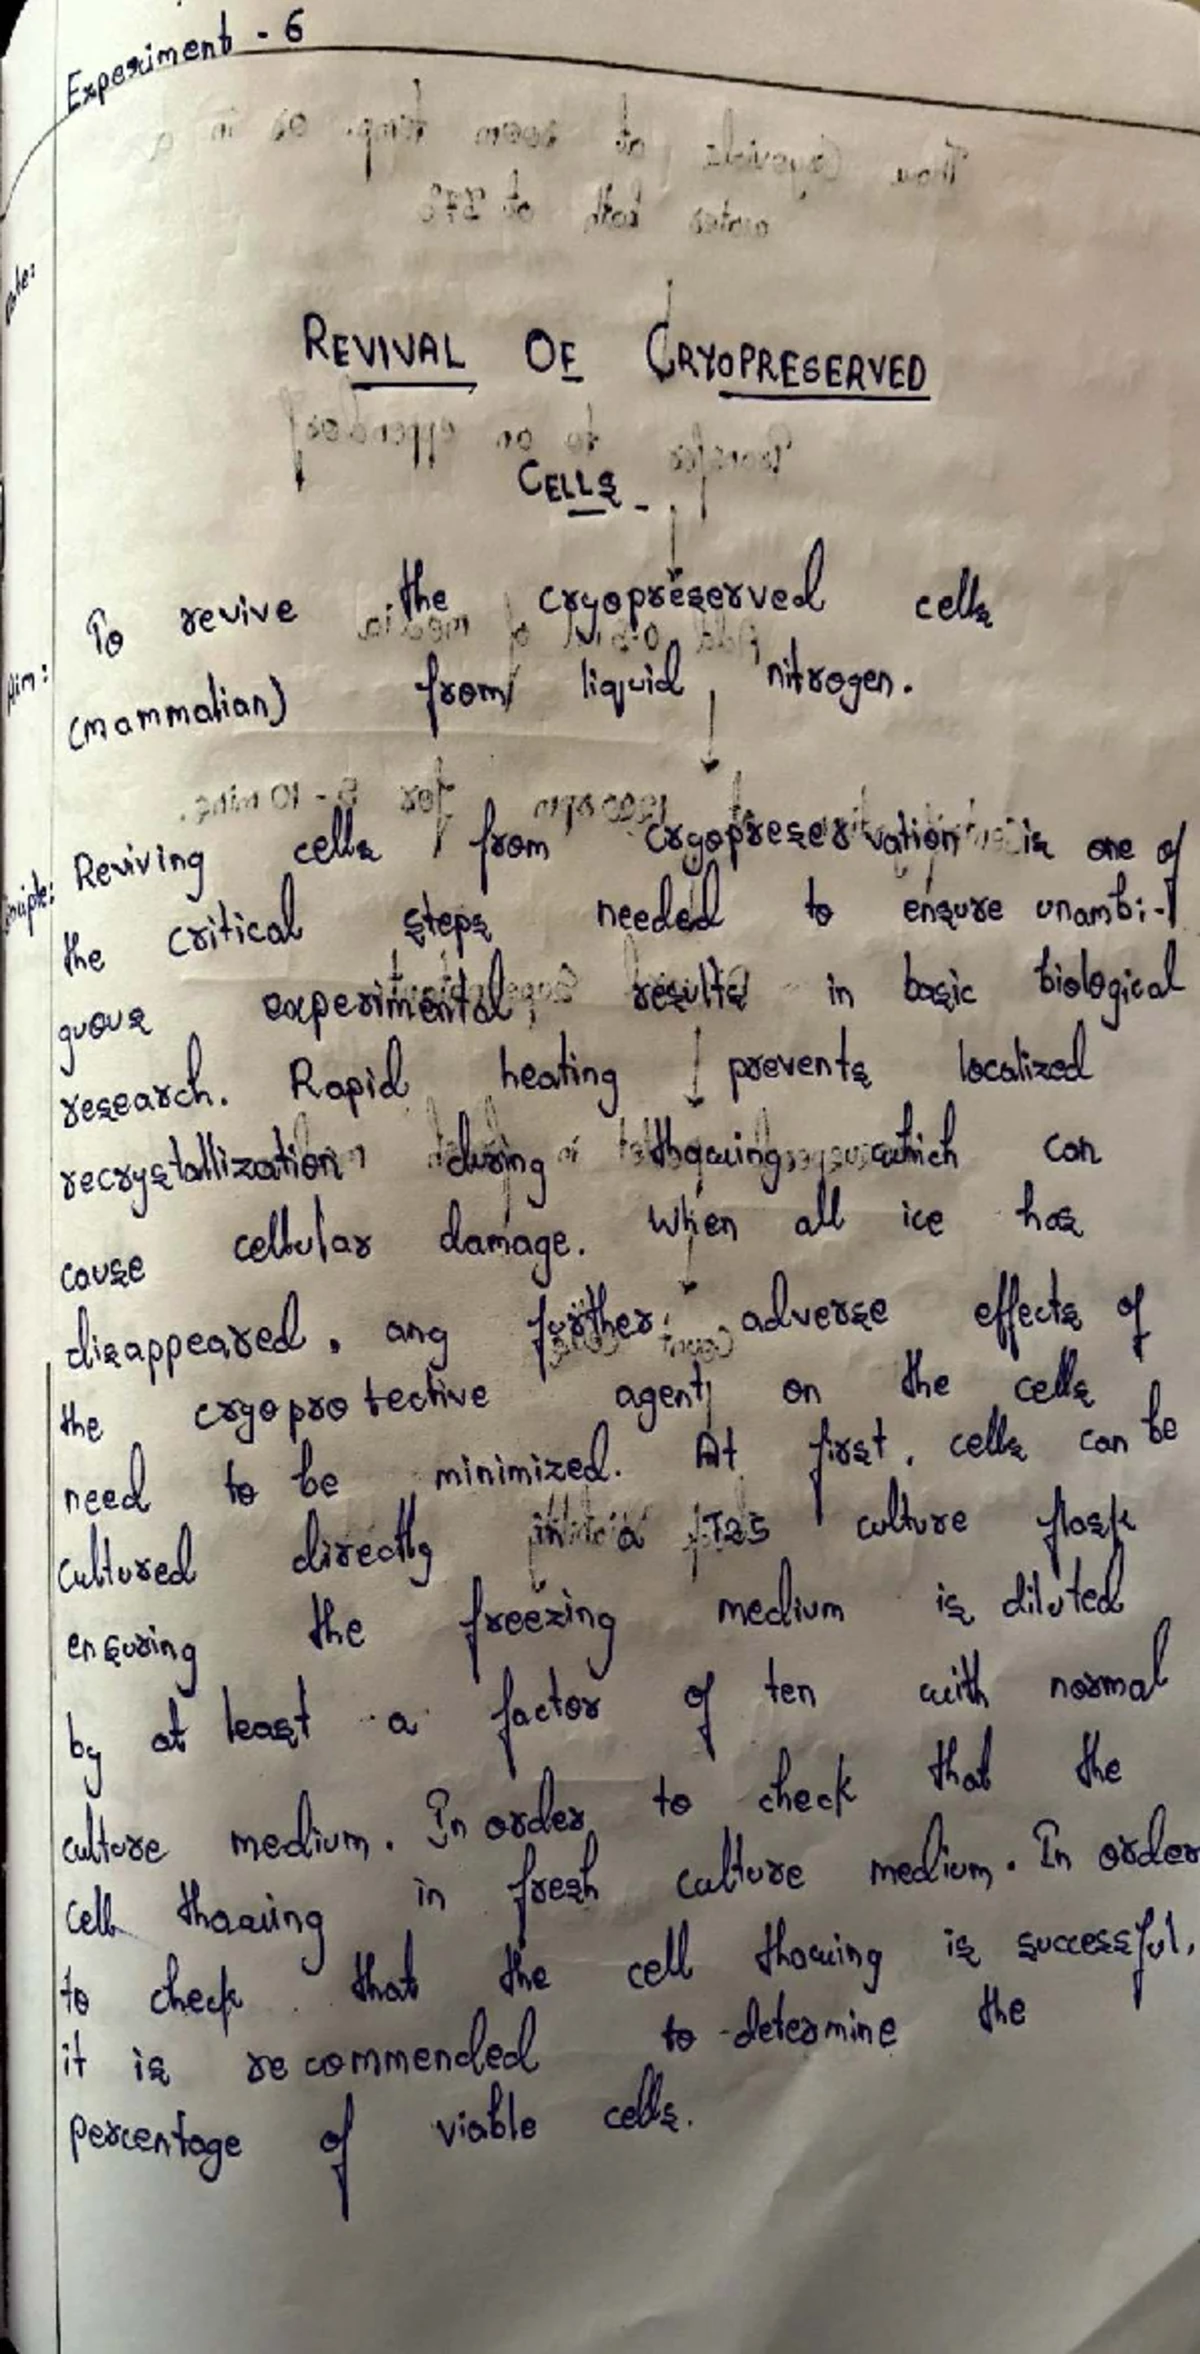 Experiment - 6
Date:
REVIVAL OF CRYOPRESERVED
CELLS -
Aim: To revive the cryopreserved cells
(mammalian) from liquid nitrogen.
Reviving cells from cryopreservation is one of
the critical steps needed to ensure unambi-
guous experimental results in basic biological
research. Rapid heating prevents localized
recrystallization during thawing which can
cause cellular damage. When all ice has
disappeared, any further adverse effects of
the cryoprotective agent on the cells
need to be minimized. At first, cells can be
cultured directly in a T25 culture flask
ensuring the freezing medium is diluted
by at least a factor of ten with normal
culture medium. In order to check that the
cell thawing in fresh culture medium. In order
to check that the cell thawing is successful,
it is recommended to determine the
percentage of viable cells.